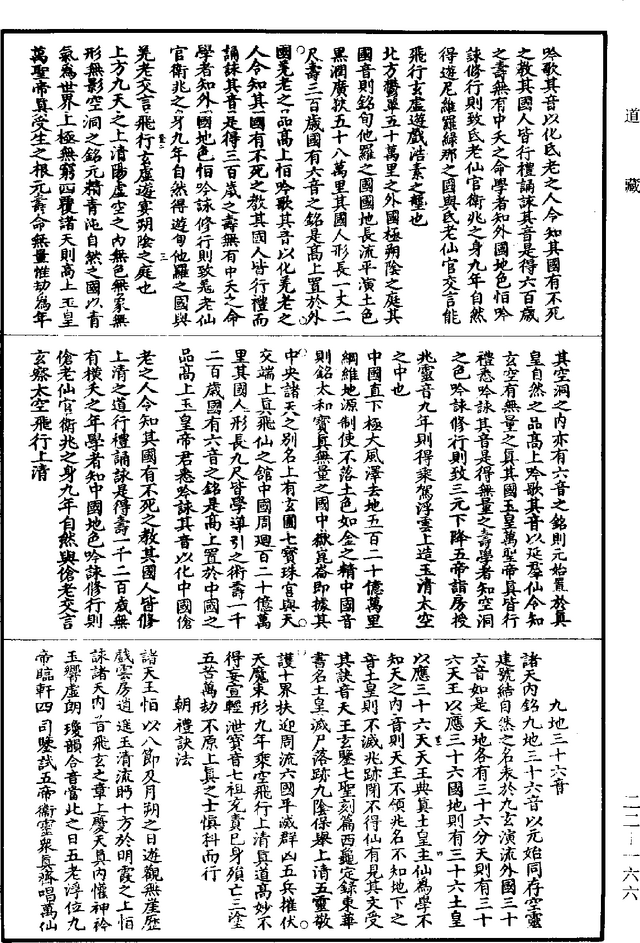 道藏
吟歌其音以化氐老之人令知其國有不死
之教其國人皆行禮誦詠其音是得六百歲
之壽無有中夭之命學者知外國地色恒吟
詠修行則致氐老仙官衛兆之身九年自然
得遊尼維羅綠那之國與氐老仙官交言能
飛行玄虛遊戲浩素之壟也
北方鬱單五十萬里之外國極朔陰之庭其
國音則銘旬他羅之國國地長流平演土色
黑潤廣狹五十八萬里其國人形長一丈二
尺壽三百歲國有六音之銘是高上置於外
國羌老之品高上恒吟歌其音以化羌老之
人令知其國有不死之教其國人皆行禮而
誦詠其音是得三百歲之壽無有中夭之命
學者知外國地色恒吟詠修行則致羌老仙
官衛兆之身九年自然得遊旬他羅之國與
羌老交言飛行玄虛遊宴朔陰之庭也
上方九天之上清陽虛空之內無色無象無
形無影空洞之銘元精青沌自然之國以青
氣為世界上極無窮四覆諸天則高上玉皇
萬聖帝真受生之根元壽命無量惟劫為年
其空洞之內亦有六音之銘則元始置於真
皇自然之品高上吟歌其音以延群仙令知
玄空有無量之真其國玉皇萬聖帝真皆行
禮悉吟詠其音是得無量之壽學者知空洞
之色吟詠修行則致三元下降五帝詣房授
兆靈音九年則得乘駕浮雲上造玉清太空
之中也
中國直下極大風澤去地五百二十億萬里
綱維地源制使不落土色如金之精中國音
則銘太和寶真無量之國中嶽崑崙即據其
中央諸天之別名上有玄圃七寶珠宮與天
交端上真飛仙之館中國周迴百二十億萬
里其國人形長九尺皆學導引之術壽一千
二百歲國有六音之銘是高上置於中國之
品高上玉皇帝君悉吟詠其音以化中國傖
老之人令知其國有不死之教其國人皆修
上清之道行禮誦詠是得壽一千二百歲無
有橫夭之年學者知中國地色吟詠修行則
傖老仙官衛兆之身九年自然與傖老交言
玄察太空飛行上清
九地三十六音
諸天內銘九地三十六音以元始同存空靈
建號結自然之名表於九玄演流外國三十
六音如是天地各有三十六分天則有三十
六天王以應三十六國地則有三十六土皇
以應三十六天天王典真土皇主仙為學不
知天之內音則天王不領兆名不知地下之
音土皇則不滅兆跡閉不得仙有見其文受
其訣音天王玄鑒七聖刻篇西龜定錄東華
書名土皇滅尸落跡九陰保舉上清五靈敬
護十界扶迎周流六國平滅群凶五兵摧伏
天魔束形九年乘空飛行上清真道高妙不
得妄宣輕泄寶音七祖充責已身殞亡三塗
五苦萬劫不原上真之士慎科而行
朝禮訣法
諸天王恒以八節及月朔之日遊觀無崖歷
戲雲房逍遙玉清流眄十方於明霞之上恒
詠諸天內音飛玄之章上慶天真內懽神衿
玉響虛朗瓊韻合音當此之日五老浮位九
帝臨軒四司鑒試五帝衛靈眾真齊唱萬仙
二二一一六六